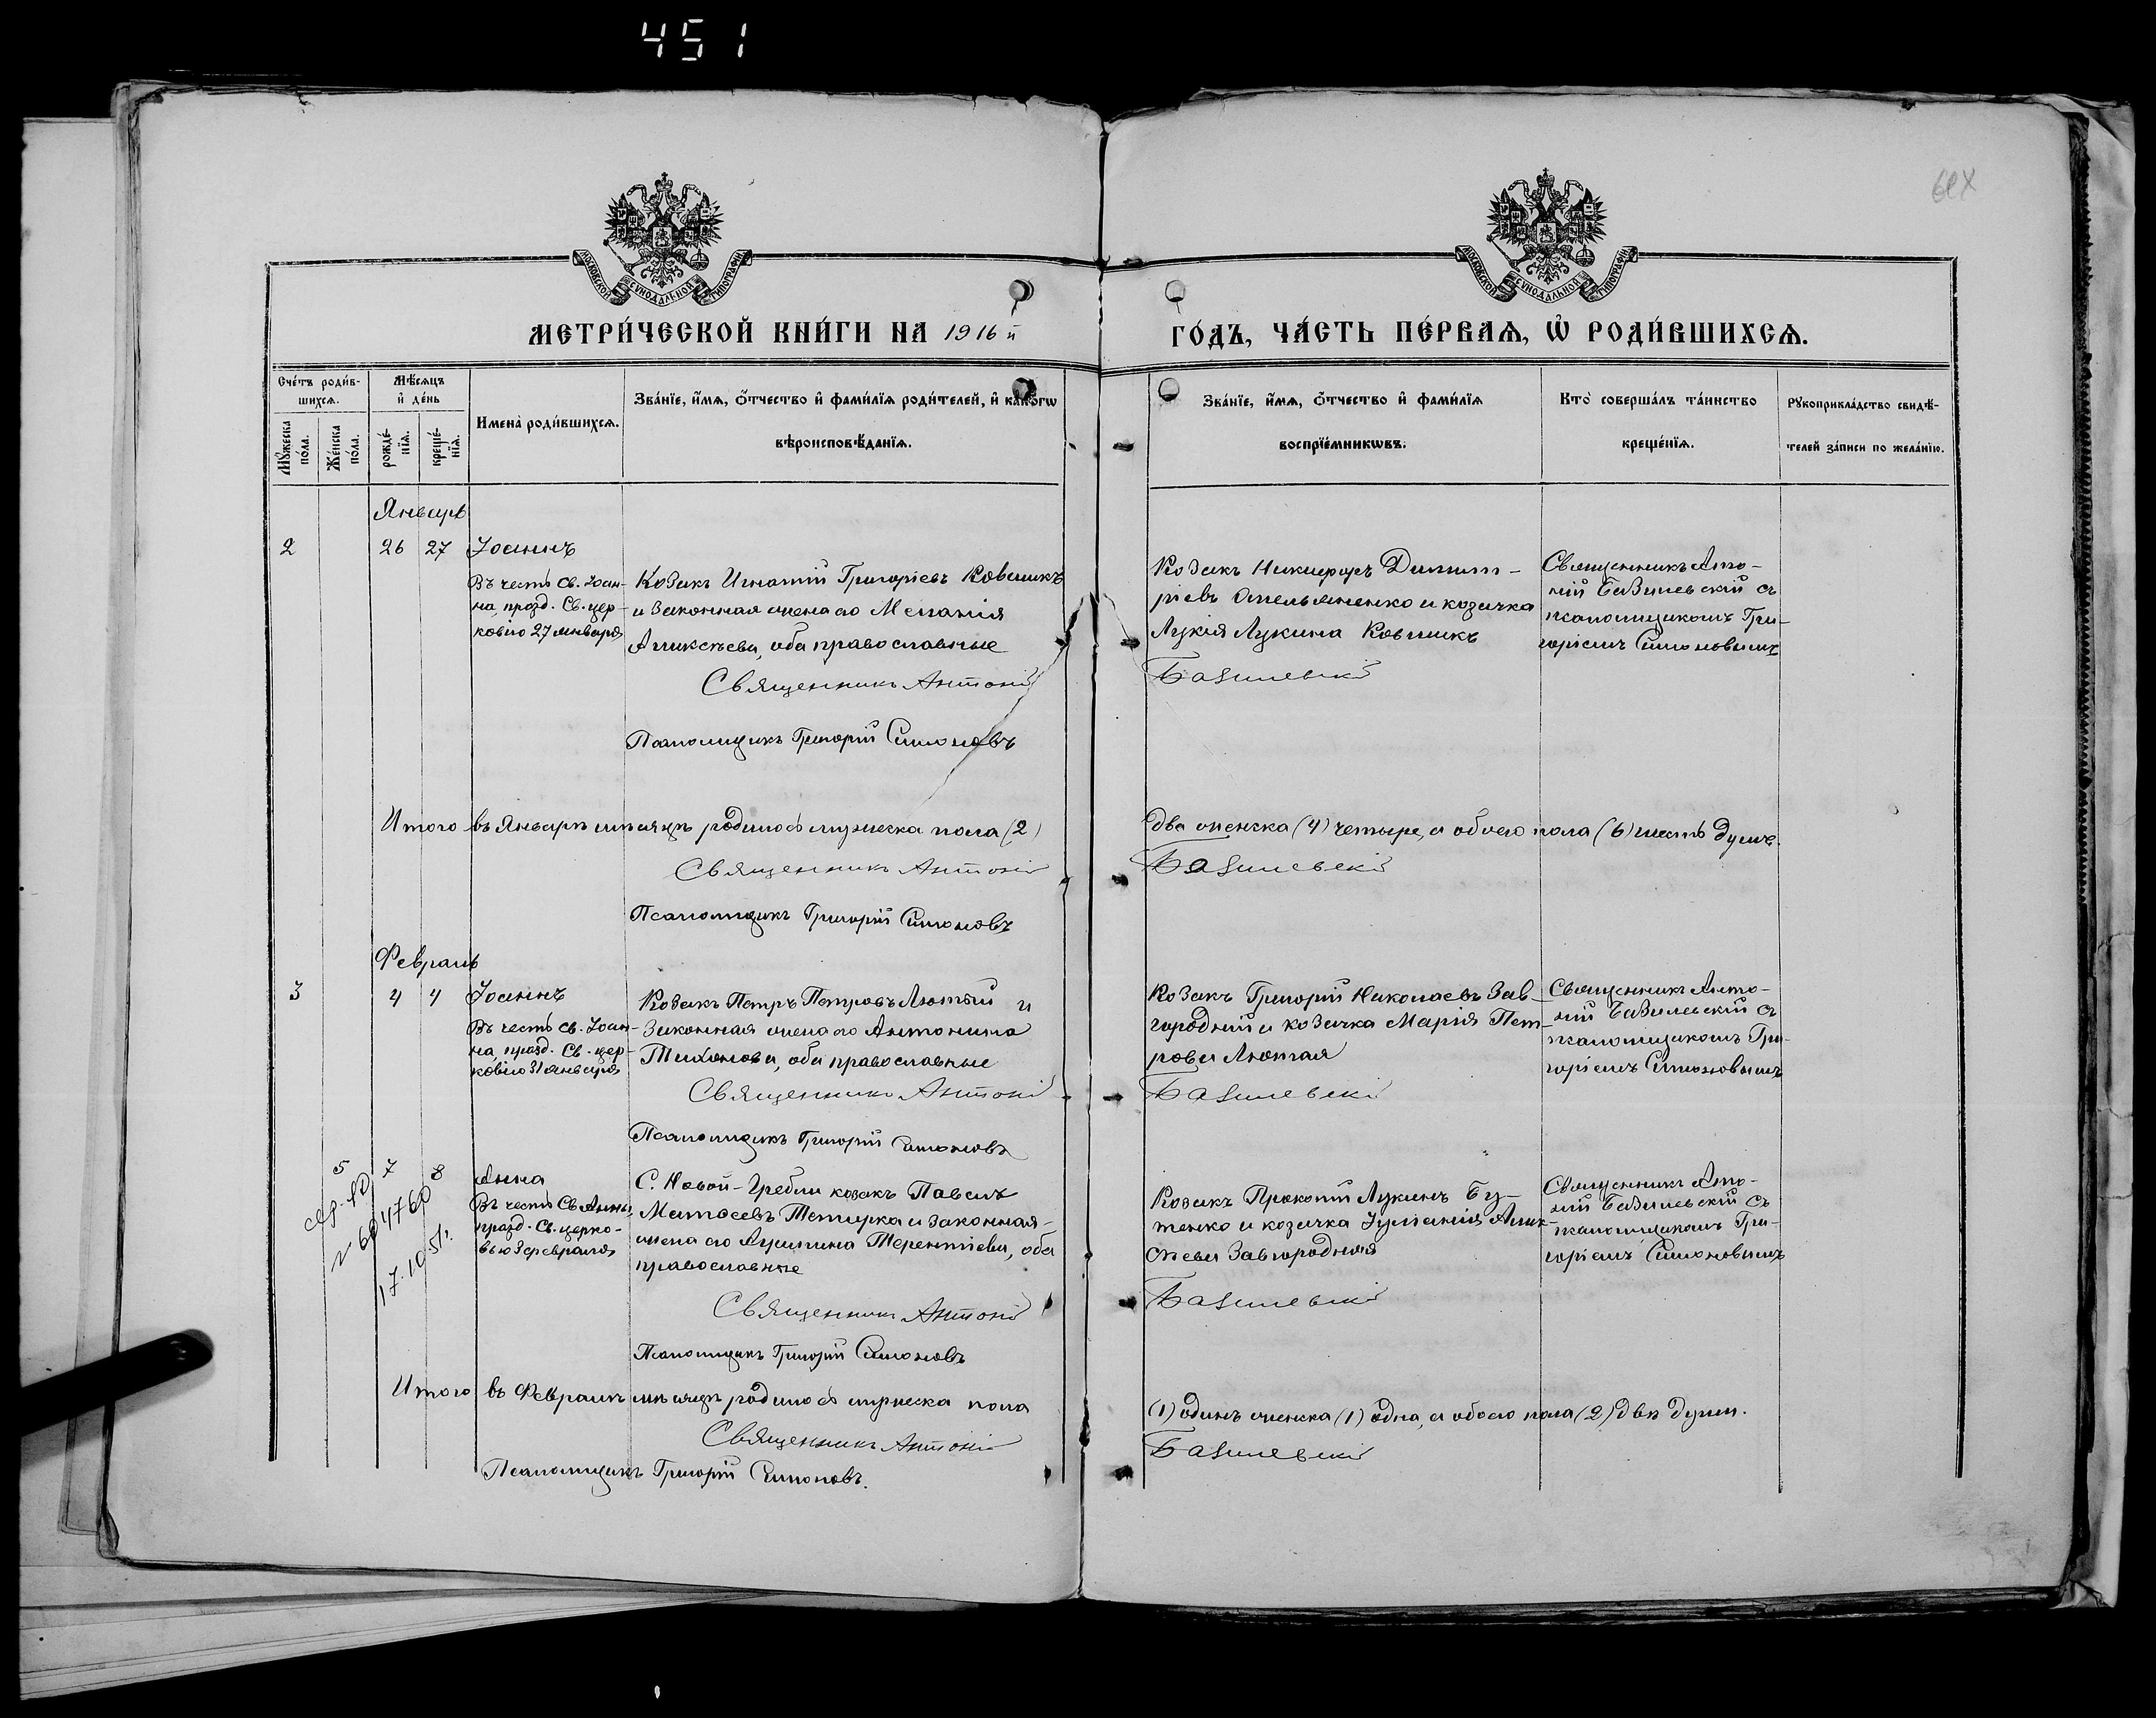 451
МОСКОВСКОЙ СѴНОДАЛЬНОЙ ТИПОГРАФІИ
МОСКОВСКОЙ СѴНОДАЛЬНОЙ ТИПОГРАФІИ
МЕТРИ́ЧЕСКОЙ КНИ́ГИ НА 1916 й
ГО́ДЪ, ЧА́СТЬ ПЕ́РВАѦ, Ѡ҆ РОДИ́ВШИХСѦ.
Сче́тъ роди́в-
шихсѧ.
Мꙋ́жеска по́ла.
Же́нска по́ла.
Мѣ́сѧцъ
и҆ де́нь
рожде́-
нїѧ.
креще́-
нїѧ.
Имена̀ роди́вшихсѧ.
Зва́нїе, и҆́мѧ, ѻ҆́тчество и҆ фами́лїѧ роди́телей, и҆ како́гѡ
вѣроисповѣ́данїѧ.
Зва́нїе, и҆́мѧ, ѻ҆́тчество и҆ фами́лїѧ
воспрїе́мникѡвъ.
Кто̀ соверша́лъ та́инство
креще́нїѧ.
Рꙋкоприкла́дство свидѣ́-
телей за́писи по жела́нїю.
Январь
2 26 27 Іоаннъ
Въ честь св. Іоан-
на, празд. Св. цер-
ковію 27 января
Козакъ Игнатій Григоріевъ Ковшикъ
и законная жена его Меланія
Алексѣева, оба православные
Священникъ Антоній
Псаломщикъ Григорій Симоновъ
Козакъ Никифоръ Димит-
ріевъ Омельяненко и козачка
Лукія Лукина Ковшикъ
Базилевскій
Священникъ Анто-
ній Базилевскій съ
псаломщикомъ Гри-
горіемъ Симоновымъ
Итого въ Январѣ мѣсяцѣ родилось мужеска пола (2)
два женска (4) четыре, а обоего пола (6) шесть душъ.
Священникъ Антоній
Базилевскій
Псаломщикъ Григорій Симоновъ
Февраль
3 4 4 Іоаннъ
Въ честь св. Іоан-
на, празд. Св. цер-
ковію 31 января
Козакъ Петръ Петровъ Лютый и
законная жена его Антонина
Тихонова, оба православные
Священникъ Антоній
Псаломщикъ Григорій Симоновъ
Козакъ Григорій Николаевъ Зав-
городній и козачка Марія Пет-
рова Лютая
Базилевскій
Священникъ Анто-
ній Базилевскій съ
псаломщикомъ Гри-
горіемъ Симоновымъ
5 7 8 Анна
№ 604760
17.10.51г.
Въ честь Св. Анны,
празд. Св. церко-
вью 3 февраля
С. Новой-Гребли козакъ Павелъ
Матѳеевъ Тетирка и законная
жена его Акилина Терентіева, оба
православные
Священникъ Антоній
Псаломщикъ Григорій Симоновъ
Козакъ Прокопій Лукинъ Бу-
тенко и козачка Іуліанія Алек-
сѣева Завгородняя
Базилевскій
Священникъ Анто-
ній Базилевскій съ
псаломщикомъ Гри-
горіемъ Симоновымъ
Итого въ Февралѣ мѣсяцѣ родилось мужеска пола
(1) одинъ женска (1) одна, а обоего пола (2) двѣ души.
Священникъ Антоній
Базилевскій
Псаломщикъ Григорій Симоновъ.